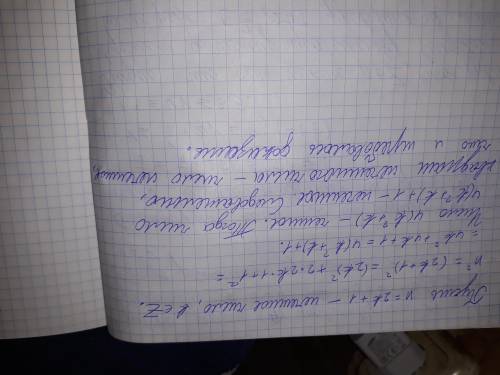 Пусть n = 2k + 1 — нечетное число, k ∈ Z.
n² = (2k+1)² = (2k)² + 2·2k·1 + 1² =
= 4k² + 4k + 1 = 4(k² + k) + 1.
Число 4(k² + k) — четное. Тогда число
4(k² + k) + 1 — нечетное. Следовательно,
квадрат нечетного числа — число нечетное,
что и требовалось доказать.